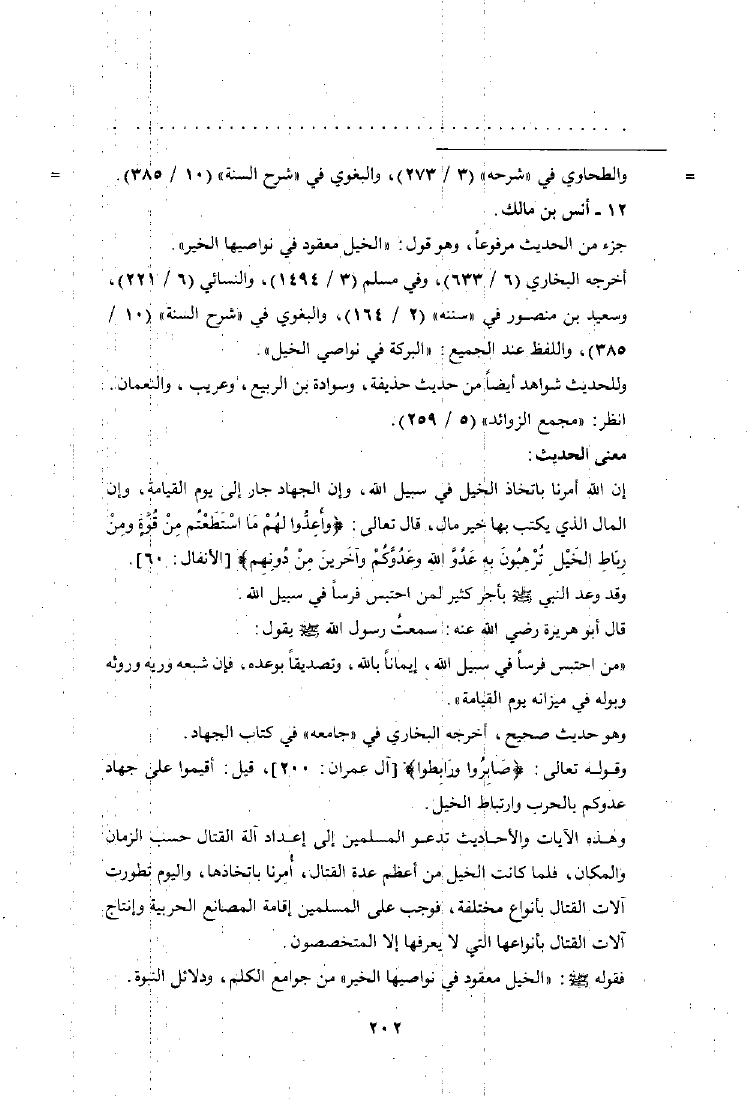 = والطحاوي في «شرحه» (٣ / ٢٧٣)، والبغوي في «شرح السنة» (١٠ / ٣٨٥). =
١٢ ـ أنس بن مالك.
جزء من الحديث مرفوعاً، وهو قول: «الخيل معقود في نواصيها الخير».
أخرجه البخاري (٦ / ٦٣٣)، وفي مسلم (٣ / ١٤٩٤)، والنسائي (٦ / ٢٢١)،
وسعيد بن منصور في «سننه» (٢ / ١٦٤)، والبغوي في «شرح السنة» (١٠ /
٣٨٥)، واللفظ عند الجميع: «البركة في نواصي الخيل».
وللحديث شواهد أيضاً من حديث حذيفة، وسوادة بن الربيع، وعريب، والنعمان.
انظر: «مجمع الزوائد» (٥ / ٢٥٩).
معنى الحديث:
إن الله أمرنا باتخاذ الخيل في سبيل الله، وإن الجهاد جار إلى يوم القيامة، وإن
المال الذي يكتب بها خير مال، قال تعالى: ﴿وأَعِدُّوا لهُمْ مَا اسْتَطَعْتُم مِنْ قُوَّةٍ ومِنْ
رِبَاطِ الخَيْلِ تُرْهِبُونَ بِهِ عَدُوَّ اللهِ وعَدُوَّكُمْ وآخَرِينَ مِنْ دُونِهِم﴾ [الأنفال: ٦٠].
وقد وعد النبي ﷺ بأجر كثير لمن احتبس فرساً في سبيل الله.
قال أبو هريرة رضي الله عنه: سمعتُ رسول الله ﷺ يقول:
«من احتبس فرساً في سبيل الله، إيماناً بالله، وتصديقاً بوعده، فإن شبعه وريه وروثه
وبوله في ميزانه يوم القيامة».
وهو حديث صحيح، أخرجه البخاري في «جامعه» في كتاب الجهاد.
وقوله تعالى: ﴿صَابِرُوا ورَابِطوا﴾ [آل عمران: ٢٠٠]، قيل: أقيموا على جهاد
عدوكم بالحرب وارتباط الخيل.
وهذه الآيات والأحاديث تدعو المسلمين إلى إعداد آلة القتال حسب الزمان
والمكان، فلما كانت الخيل من أعظم عدة القتال، أُمرنا باتخاذها، واليوم تطورت
آلات القتال بأنواع مختلفة، فوجب على المسلمين إقامة المصانع الحربية وإنتاج
آلات القتال بأنواعها التي لا يعرفها إلا المتخصصون.
فقوله ﷺ: «الخيل معقود في نواصيها الخير» من جوامع الكلم، ودلائل النبوة.
٢٠٢